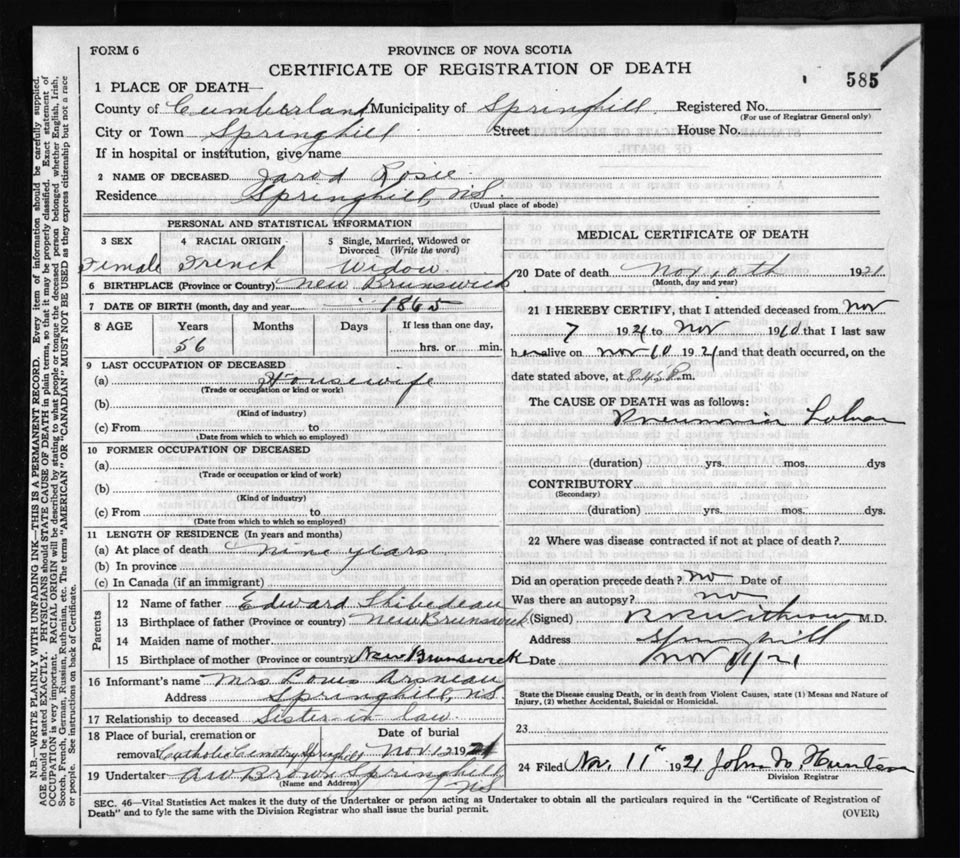 FORM 6
PROVINCE OF NOVA SCOTIA
CERTIFICATE OF REGISTRATION OF DEATH
585
1 PLACE OF DEATH—
County of Cumberland Municipality of Springhill Registered No.
(For use of Registrar General only)
City or Town Springhill Street House No.
If in hospital or institution, give name
2 NAME OF DECEASED Jarod Rosie
Residence Springhill, NS.
(Usual place of abode)
PERSONAL AND STATISTICAL INFORMATION
3 SEX 4 RACIAL ORIGIN 5 Single, Married, Widowed or Divorced (Write the word)
Female French Widow.
6 BIRTHPLACE (Province or Country) New Brunswick
7 DATE OF BIRTH (month, day and year) 1865
8 AGE Years Months Days If less than one day,
56 hrs. or min.
9 LAST OCCUPATION OF DECEASED
(a) Housewife
(Trade or occupation or kind or work)
(b)
(Kind of industry)
(c) From to
(Date from which to which so employed)
10 FORMER OCCUPATION OF DECEASED
(a)
(Trade or occupation or kind of work)
(b)
(Kind of industry)
(c) From to
(Date from which to which so employed)
11 LENGTH OF RESIDENCE (In years and months)
(a) At place of death nine years
(b) In province
(c) In Canada (if an immigrant)
Parents
12 Name of father Edward Thibedeau
13 Birthplace of father (Province or country) New Brunswick
14 Maiden name of mother
15 Birthplace of mother (Province or country) New Brunswick
16 Informant's name Mrs Louis Arsneau
Address Springhill, NS
17 Relationship to deceased Sister in law.
18 Place of burial, cremation or Date of burial
removal Catholic Cemetry Springhill Nov. 12 1921
19 Undertaker A W Brown Springhill,
NS
(Name and Address)
MEDICAL CERTIFICATE OF DEATH
20 Date of death Nov 10th 1921
(Month, day and year)
21 I HEREBY CERTIFY, that I attended deceased from Nov
7 1921 to Nov 1910 that I last saw
her alive on Nov 10 1921 and that death occurred, on the
date stated above, at 8.45 P.m.
The CAUSE OF DEATH was as follows:
Pneumonia Lobar
(duration) yrs. mos. dys
CONTRIBUTORY
(Secondary)
(duration) yrs. mos. dys.
22 Where was disease contracted if not at place of death?
Did an operation precede death? no Date of
Was there an autopsy? no
(Signed) Withrow M.D.
Address Springhill
Date Nov 11/21
State the Disease causing Death, or in death from Violent Causes, state (1) Means and Nature of
Injury, (2) whether Accidental, Suicidal or Homicidal.
23
24 Filed Nov. 11th 1921 John
Division Registrar
SEC. 46—Vital Statistics Act makes it the duty of the Undertaker or person acting as Undertaker to obtain all the particulars required in the "Certificate of Registration of
Death" and to fyle the same with the Division Registrar who shall issue the burial permit.
(OVER)
N.B.—WRITE PLAINLY WITH UNFADING INK—THIS IS A PERMANENT RECORD. Every item of information should be carefully supplied.
AGE should be stated EXACTLY. PHYSICIANS should STATE CAUSE OF DEATH in plain terms, so that it may be properly classified. Exact statement of
OCCUPATION is very important. RACIAL ORIGIN will be described by stating to what people or tongue the deceased person belonged whether English, Irish,
Scotch, French, German, Russian, Ruthenian, etc. The terms "AMERICAN" OR "CANADIAN" MUST NOT BE USED as they express citizenship but not a race
or people. See instructions on back of Certificate.